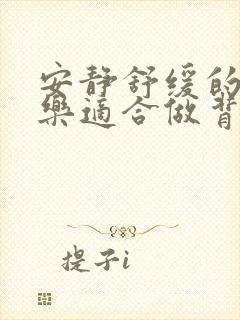 安静舒缓的
乐适合做背
提子i